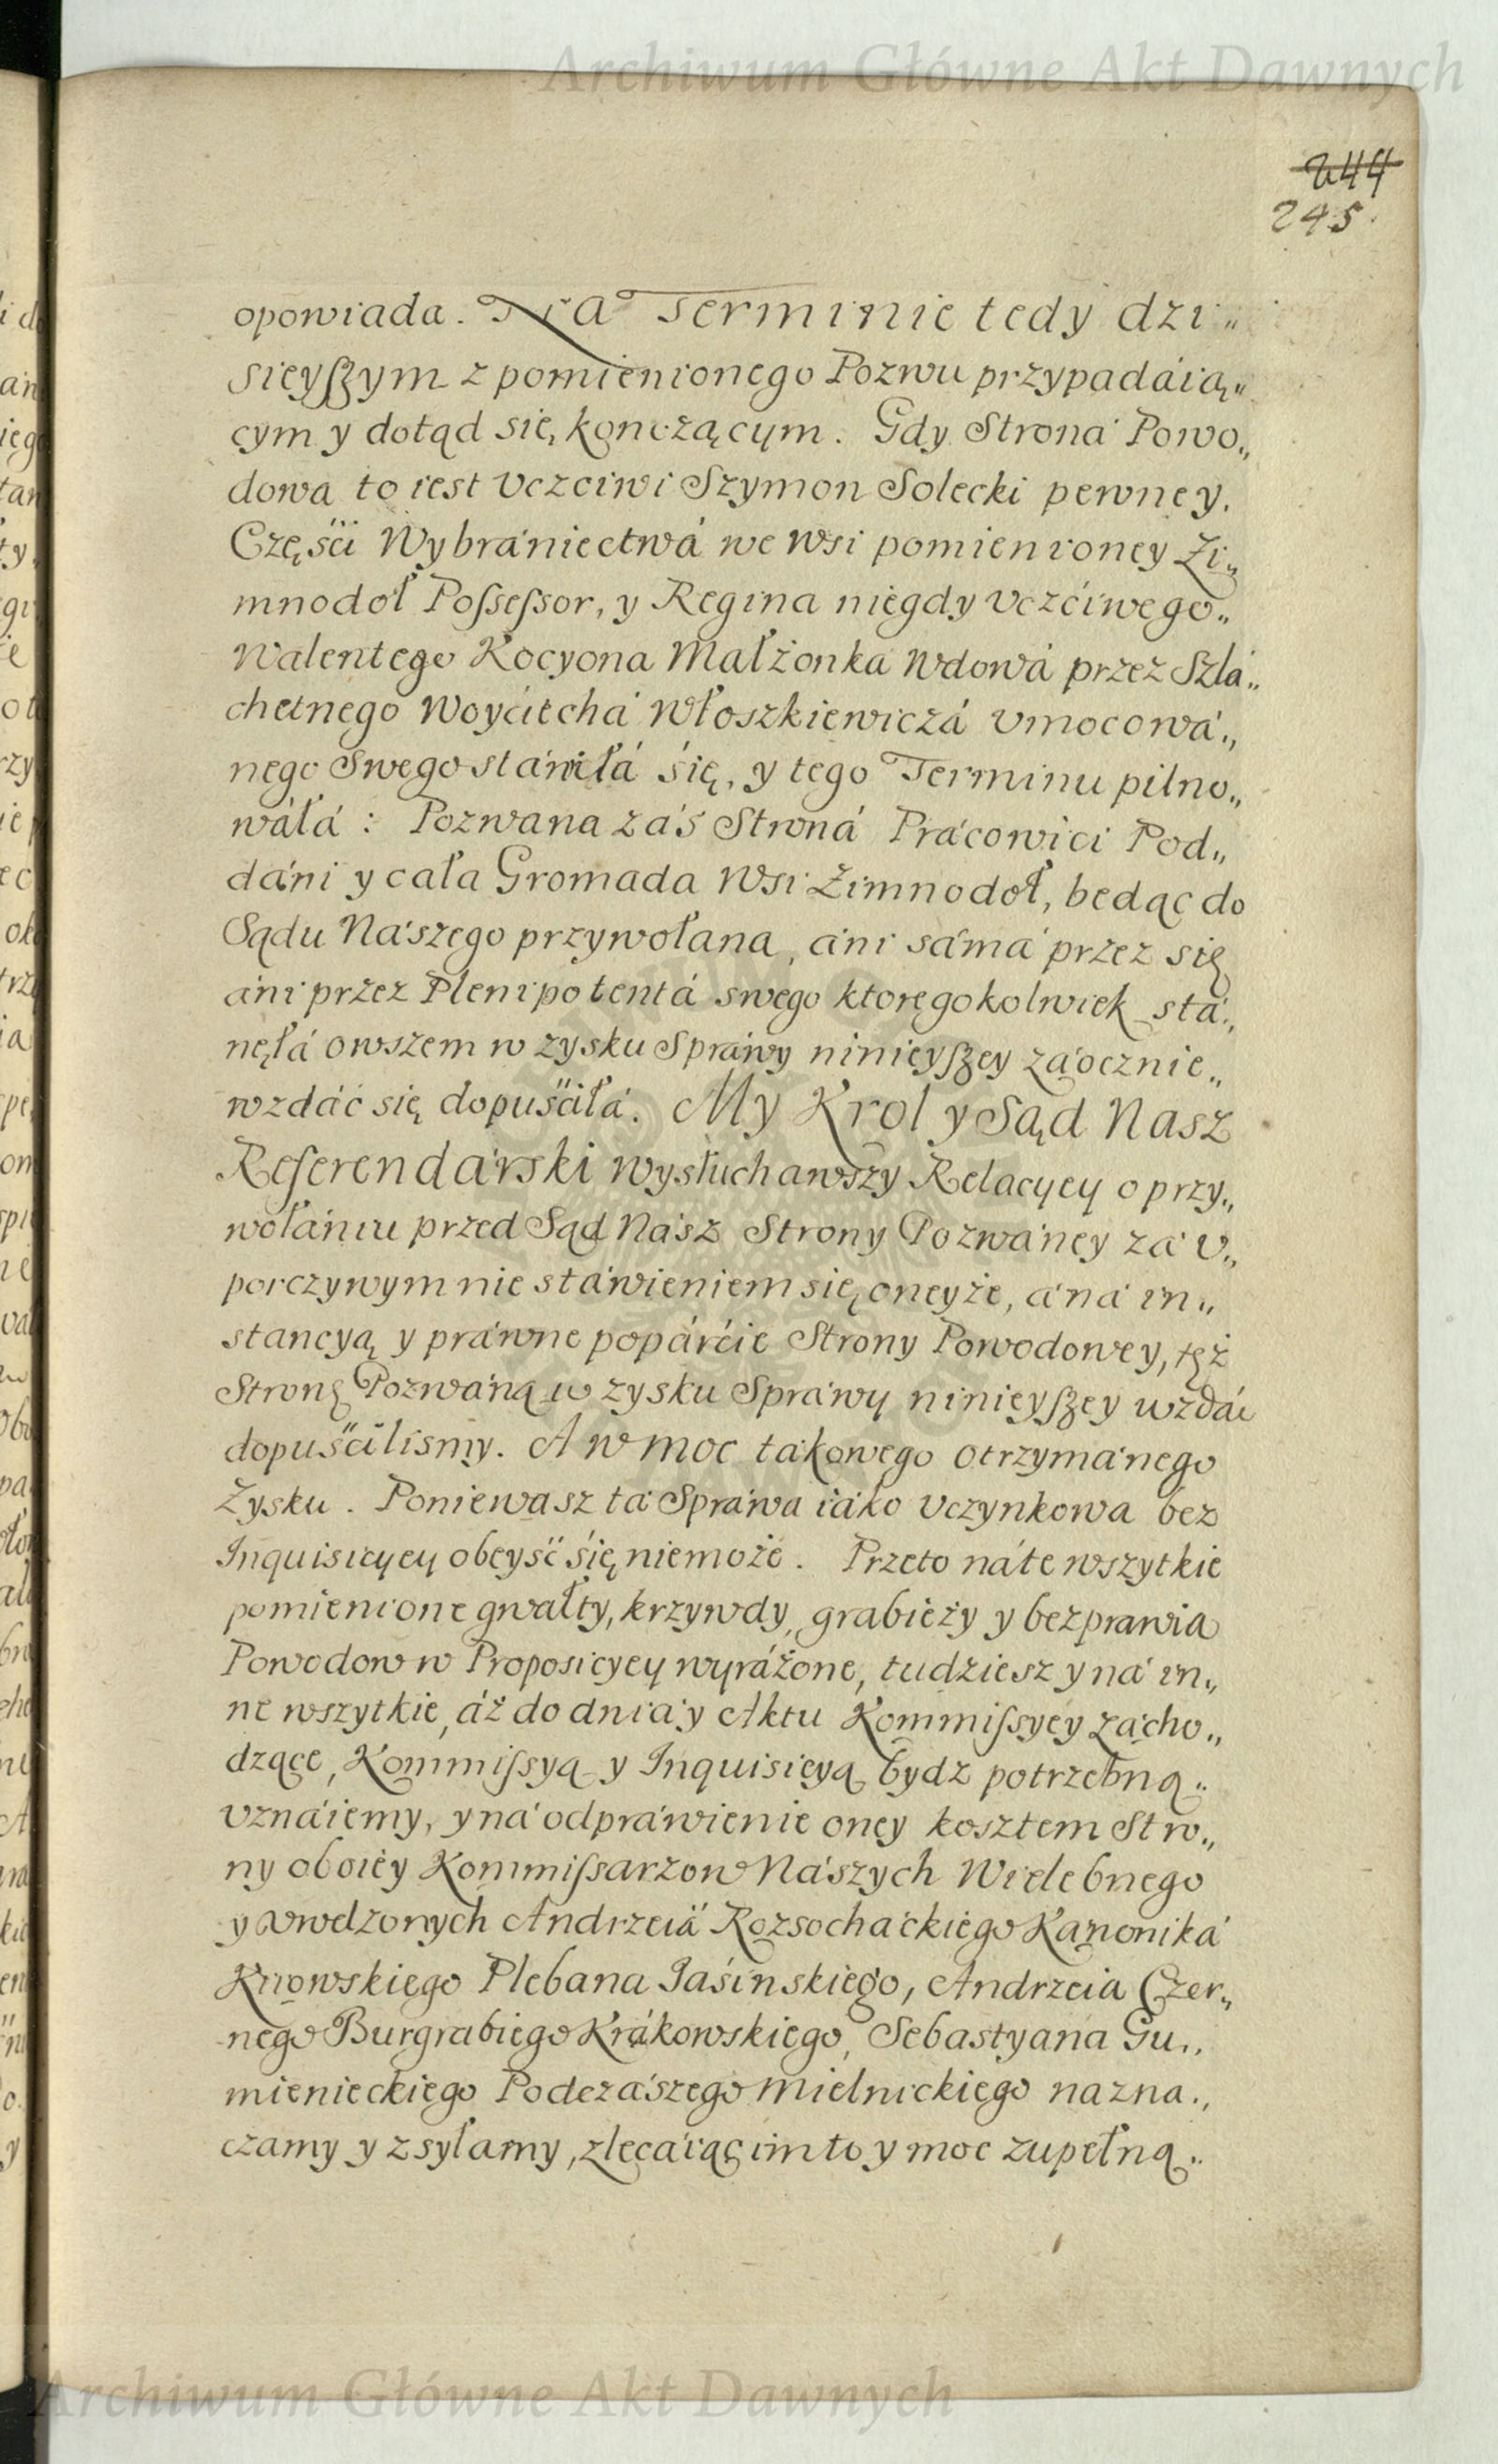 Archiwum Główne Akt Dawnych
244
245.
opowiada. Na Terminie tedy dzi„
sieyſzym z pomienionego Pozwu przypadáią„
cym y dotąd się kończącym. Gdy Stroná Powo„
dowa to iest Vczciwi Szymon Solecki pewney
Częśći Wybrániectwá we Wsi pomienioney Zi„
mnodoł Poſseſsor, y Regina niegdy Vczćiwego„
Walentego Kocyona Małżonka Wdowá przez Szlá„
chetnego Woyćiechá Włoszkiewiczá Vmocowá„
nego Swego stáwiłá śię, y tego Terminu pilno„
wáłá: Pozwana záś Stroná Prácowici Pod„
dáni y cała Gromada Wsi Zimnodoł, bedąc do
Sądu Nászego przywołana, áni sámá przez się
áni przez Plenipotentá swego ktoregokolwiek stá„
nęłá owszem w zysku Spráwy ninieyſzey záocznie„
wzdáć się dopuśćiłá. My Krol y Sąd Nasz
Referendárski wysłuchawszy Relacyey o przy„
wołániu przed Sąd Nász Strony Pozwáney zá v„
porczywym nie stáwieniem się oneyże, á ná in„
stancyą y práwne popárćie Strony Powodowey, tęż
Stronę Pozwáną w zysku Spráwy ninieyſzey wzdáć
dopuśćilismy. A w moc tákowego otrzymánego
Zysku. Poniewasz tá Spráwa iáko Vczynkowa bez
Inquisicyey obeyść śię niemoże. Przeto ná te wszytkie
pomienione gwałty, krzywdy, grabieży y bezprawia
Powodow w Proposicyey wyráżone, tudziesz y ná in„
ne wszytkie, áż do dnia y Aktu Kommiſsyey zácho„
dzące, Kommiſsyą y Inquisicyą bydz potrzebną„
vznáiemy, y ná odpráwienie oney kosztem Stro„
ny oboiey Kommiſsarzow Nászych Wielebnego
y Vrodzonych Andrzeiá Rozsocháckiego Kánoniká
Kiiowskiego Plebana Jaśinskiego, Andrzeia Czer„
nego Burgrabiego Krákowskiego, Sebastyana Gu„
mienieckiego Podczászego Mielnickiego nazna„
czamy y zsyłamy, zlecáiąc im to y moc zupełną„
Archiwum Główne Akt Dawnych